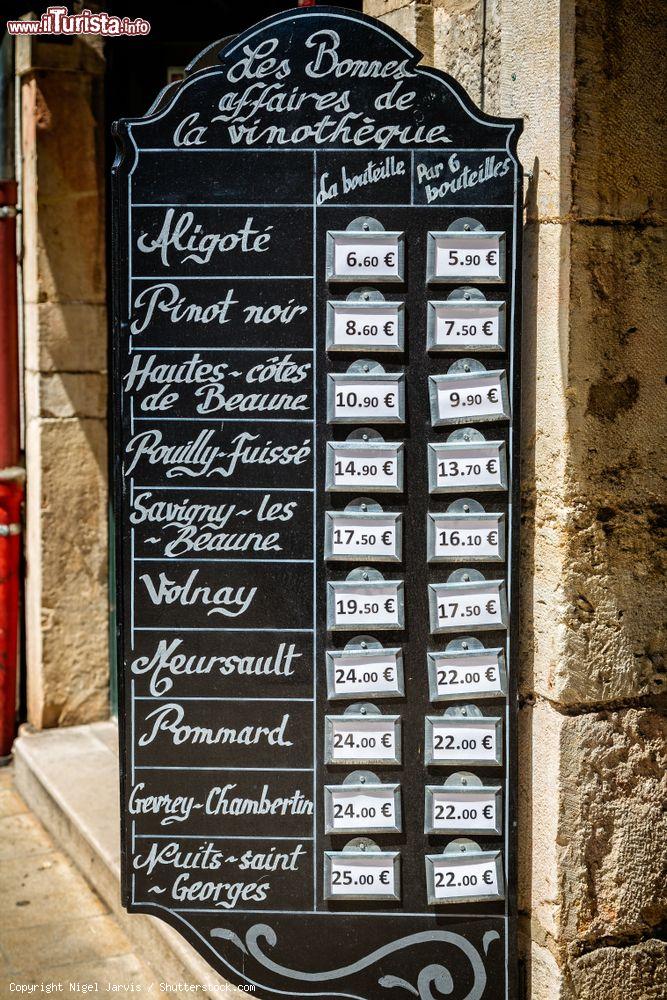 www.ilTurista.info
Les Bonnes
affaires de
la vinothèque
La bouteille
Par 6
bouteilles
Aligoté
6.60 €
5.90 €
Pinot noir
8.60 €
7.50 €
Hautes~côtes
de Beaune
10.90 €
9.90 €
Pouilly-Fuissé
14.90 €
13.70 €
Savigny~les
~ Beaune
17.50 €
16.10 €
Volnay
19.50 €
17.50 €
Meursault
24.00 €
22.00 €
Pommard
24.00 €
22.00 €
Gevrey-Chambertin
24.00 €
22.00 €
Nuits~saint
~ Georges
25.00 €
22.00 €
Copyright Nigel Jarvis / Shutterstock.com